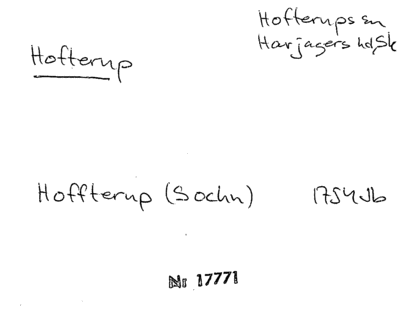 Hofterups sn
Harjagers hd, Sk
Hofterup
Hoffterup (Sochn) 1754 Jb
Nr 17771